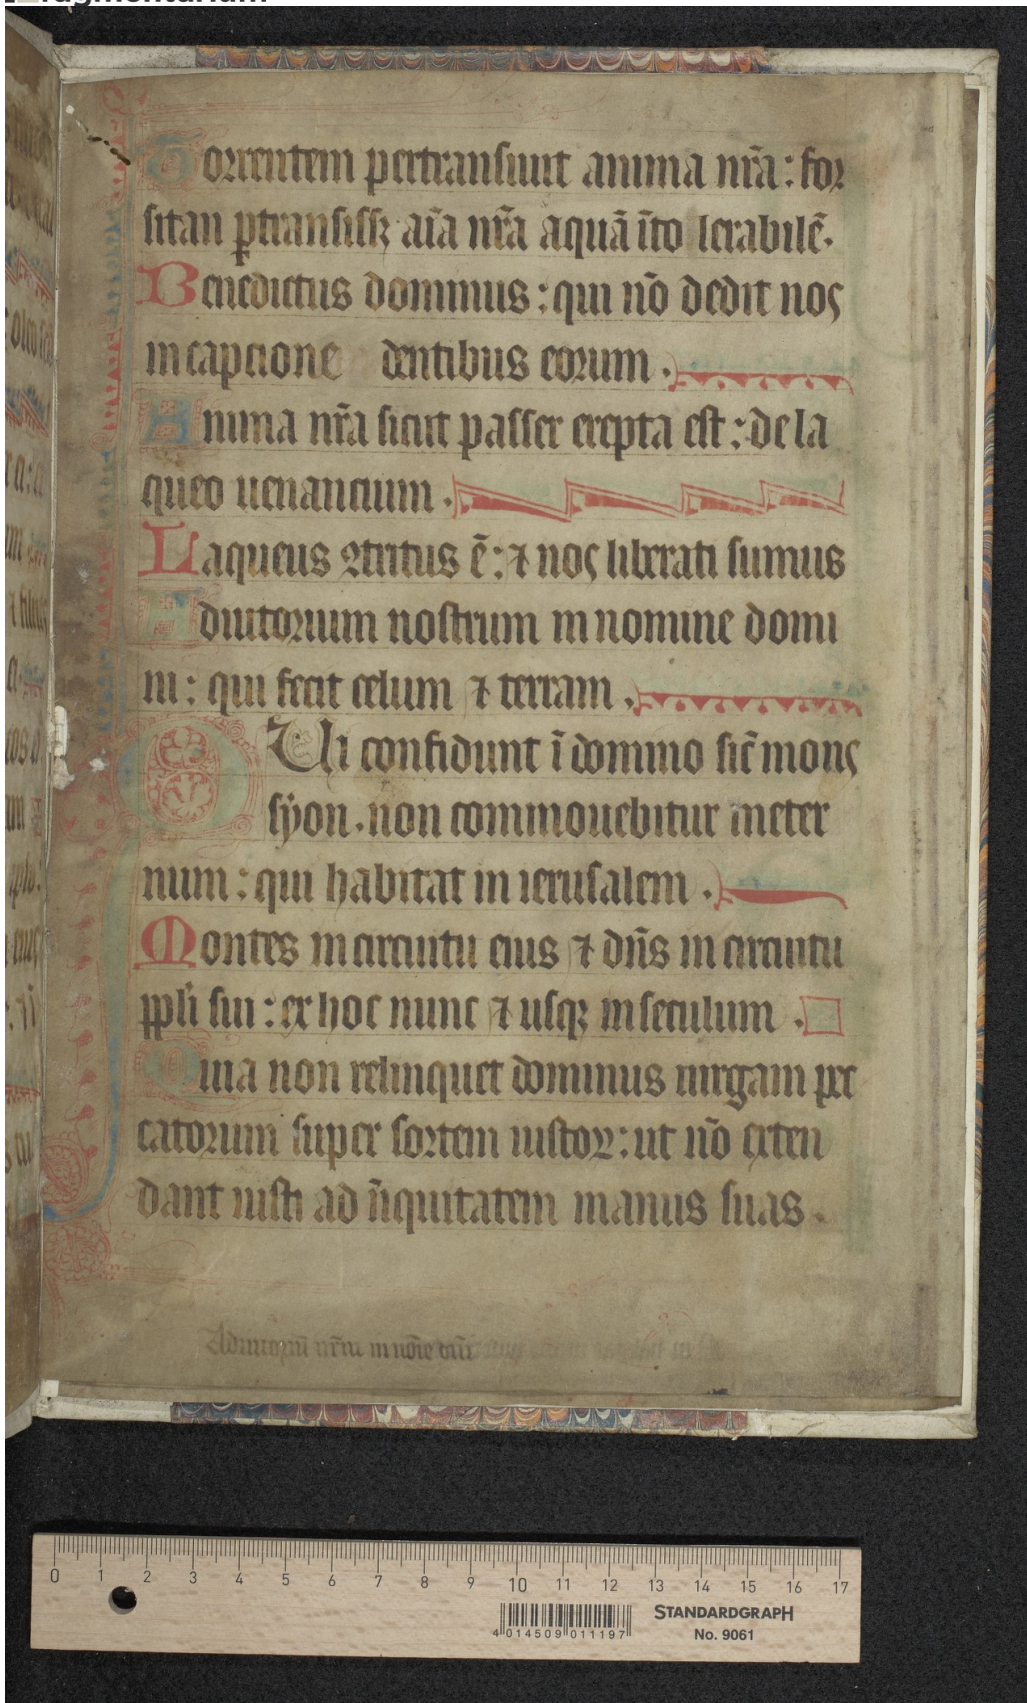 Torrentem pertransiuit anima nr̄a : for
sitan ꝑtransissꝫ aīa nr̄a aquā īto lerabilē.
Benedictus dominus : qui nō dedit nos
in capcione dentibus eorum .
Anima nr̄a sicut passer erepta est : de la
queo uenancium .
Laqueus ꝯtritus ē : ⁊ nos liberati sumus
Adiutorium nostrum in nomine domi
ni : qui fecit celum ⁊ terram .
QUi confidunt ī domino sic̄ mons
syon . non commouebitur in eter
num : qui habitat in ierusalem .
Montes in circuitu eius ⁊ dn̄s in circuitu
ppl̄i sui : ex hoc nunc ⁊ usqꝫ in seculum .
Quia non relinquet dominus uirgam pec
catorum super sortem iustoꝝ : ut nō exten
dant iusti ad īiquitatem manus suas .
Adiutoriū nr̄m in nōie dn̄i
0 1 2 3 4 5 6 7 8 9 10 11 12 13 14 15 16 17
STANDARDGRAPH
4 014509 011197
No. 9061